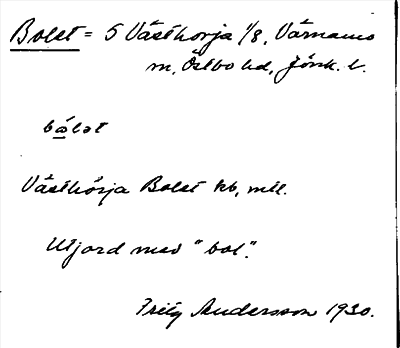 Bolet = S Västhorja 1/8, Värnamo
m, Östbo hd, Jönk. l.
bålet
Västhorja Bolet kb, mtl.
Utjord med "bol".
Fritz Andersson 1930.